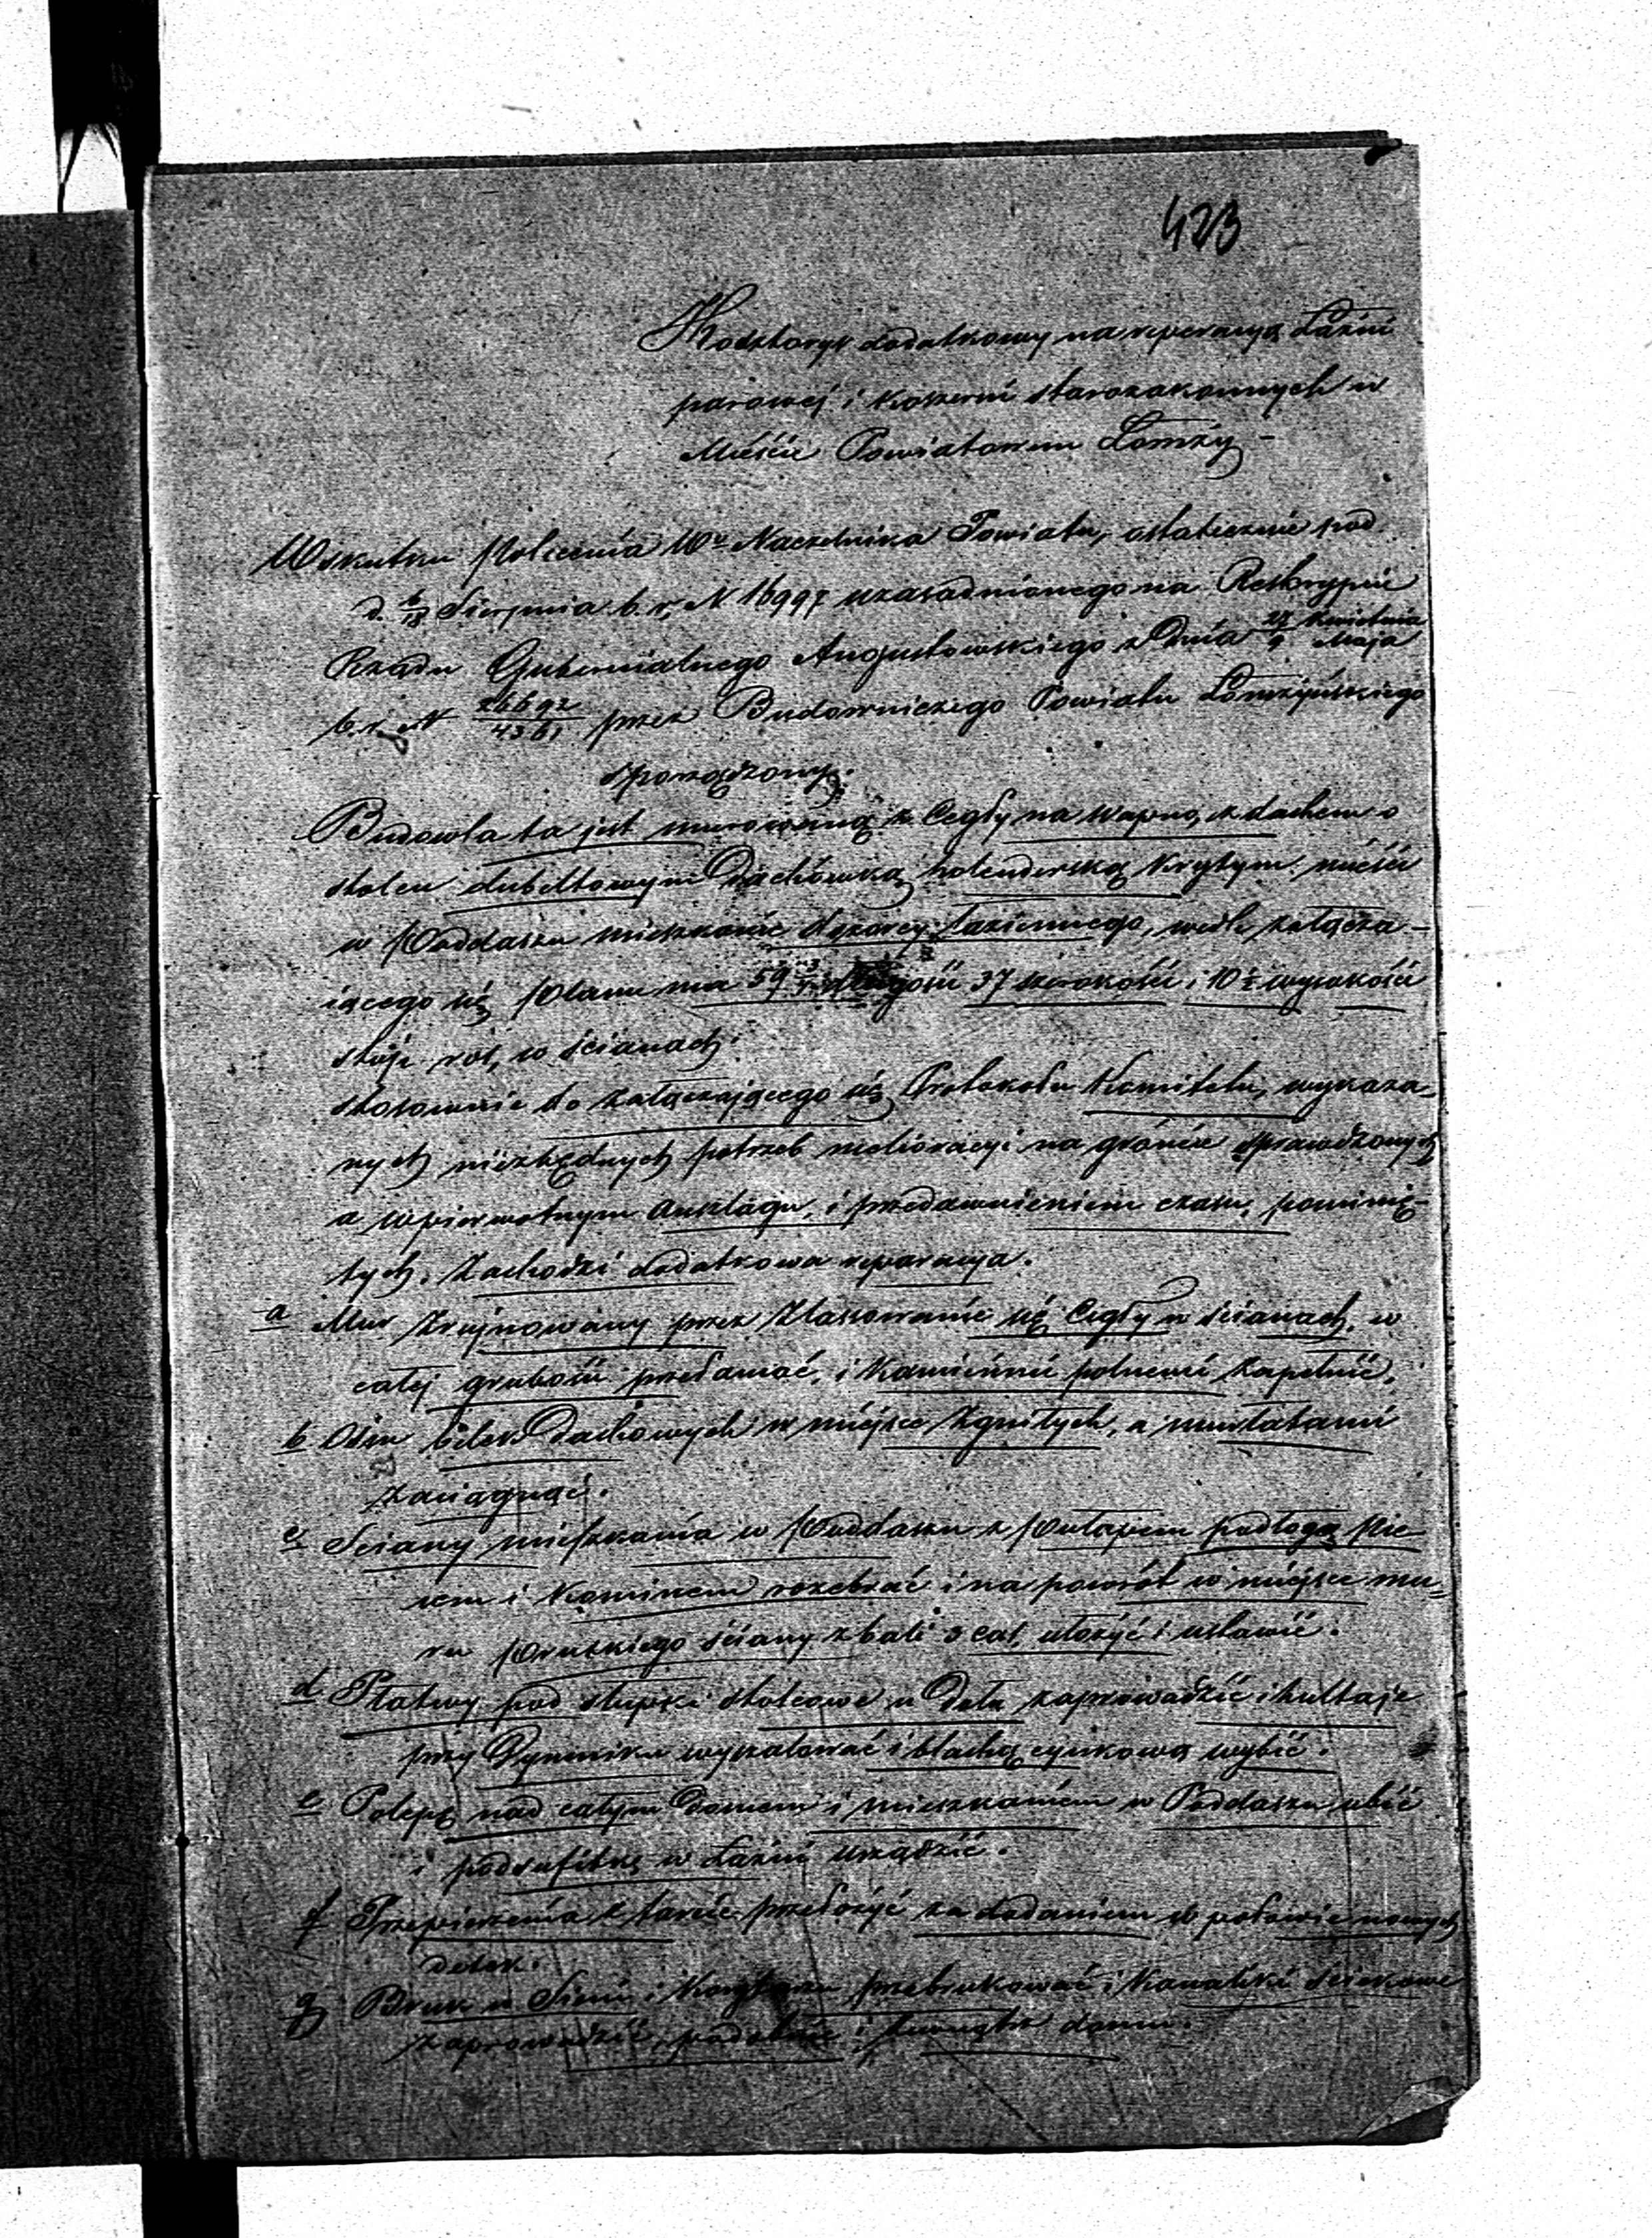 423
Kosztorys dodatkowy na reperacyą Łaźni
parowej i koszerni starozakonnych w
Mieście Powiatowem Łomży -
Wskutku Polecenia Wo Naczelnika Powiatu, ostatecznie pod
d. 6/18 Sierpnia b. r, N 16997 uzasadnionego na Reskrypcie
Rządu Gubernialnego Augustowskiego z Dnia 27/9 Kwietnia/Maja
b. r. N 26692/4361 przez Budowniczego Powiatu Łomżyńskiego
sporządzony.
Budowla ta jest murowaną z Cegły na wapno, z dachem o
stolcu dubeltowym Dachówką holenderską krytym mieści
w Poddaszu mieszkanie dozorcy łaziennego, wedle załącza-
iącego się Planu ma 59 długości 37 szerokości i 10 ½ wysokości
stóp w ścianach.
Stosownie do załączającego się Protokołu Komitetu, wykaza-
nych niezbędnych potrzeb melioracyi na gróncie sprawdzonych
a w pierwotnym Anszlagu, i przedawnieniem czasu, pominię-
tych. Zachodzi dodatkowa reparacya.
a Mur zrujnowany przez zlassowanie się Cegły w ścianach, w
całej grubości przełamać, i kamieniami zapełnić.
b Ośm belek Dachowych w miejsce zgniłych, z murłatami
zaciągnąć.
c Ściany mieszkania w Poddaszu z Pułapem podłogą Pie-
cem i Kominem rozebrać i na powrót w miejsce mu-
ru Pruskiego ściany z bali 3 cal. ułożyć i ustawić.
d Płatwy pod słupki stolcowe u Dołu zaprowadzić i
przy Dymniku wyszalować i blachą cynkową wybić.
e Polepę nad całym Domem i mieszkaniem w Poddaszu ubić
i podsufitkę w Łaźni urządzić.
f Przepierzenia z tarcic przełożyć za dodaniem w połowie nowych
delek.
g Bruk w Sieni i przebrukować i Kanaliki ściekowe
zaprowadzić, podobnie i domu.